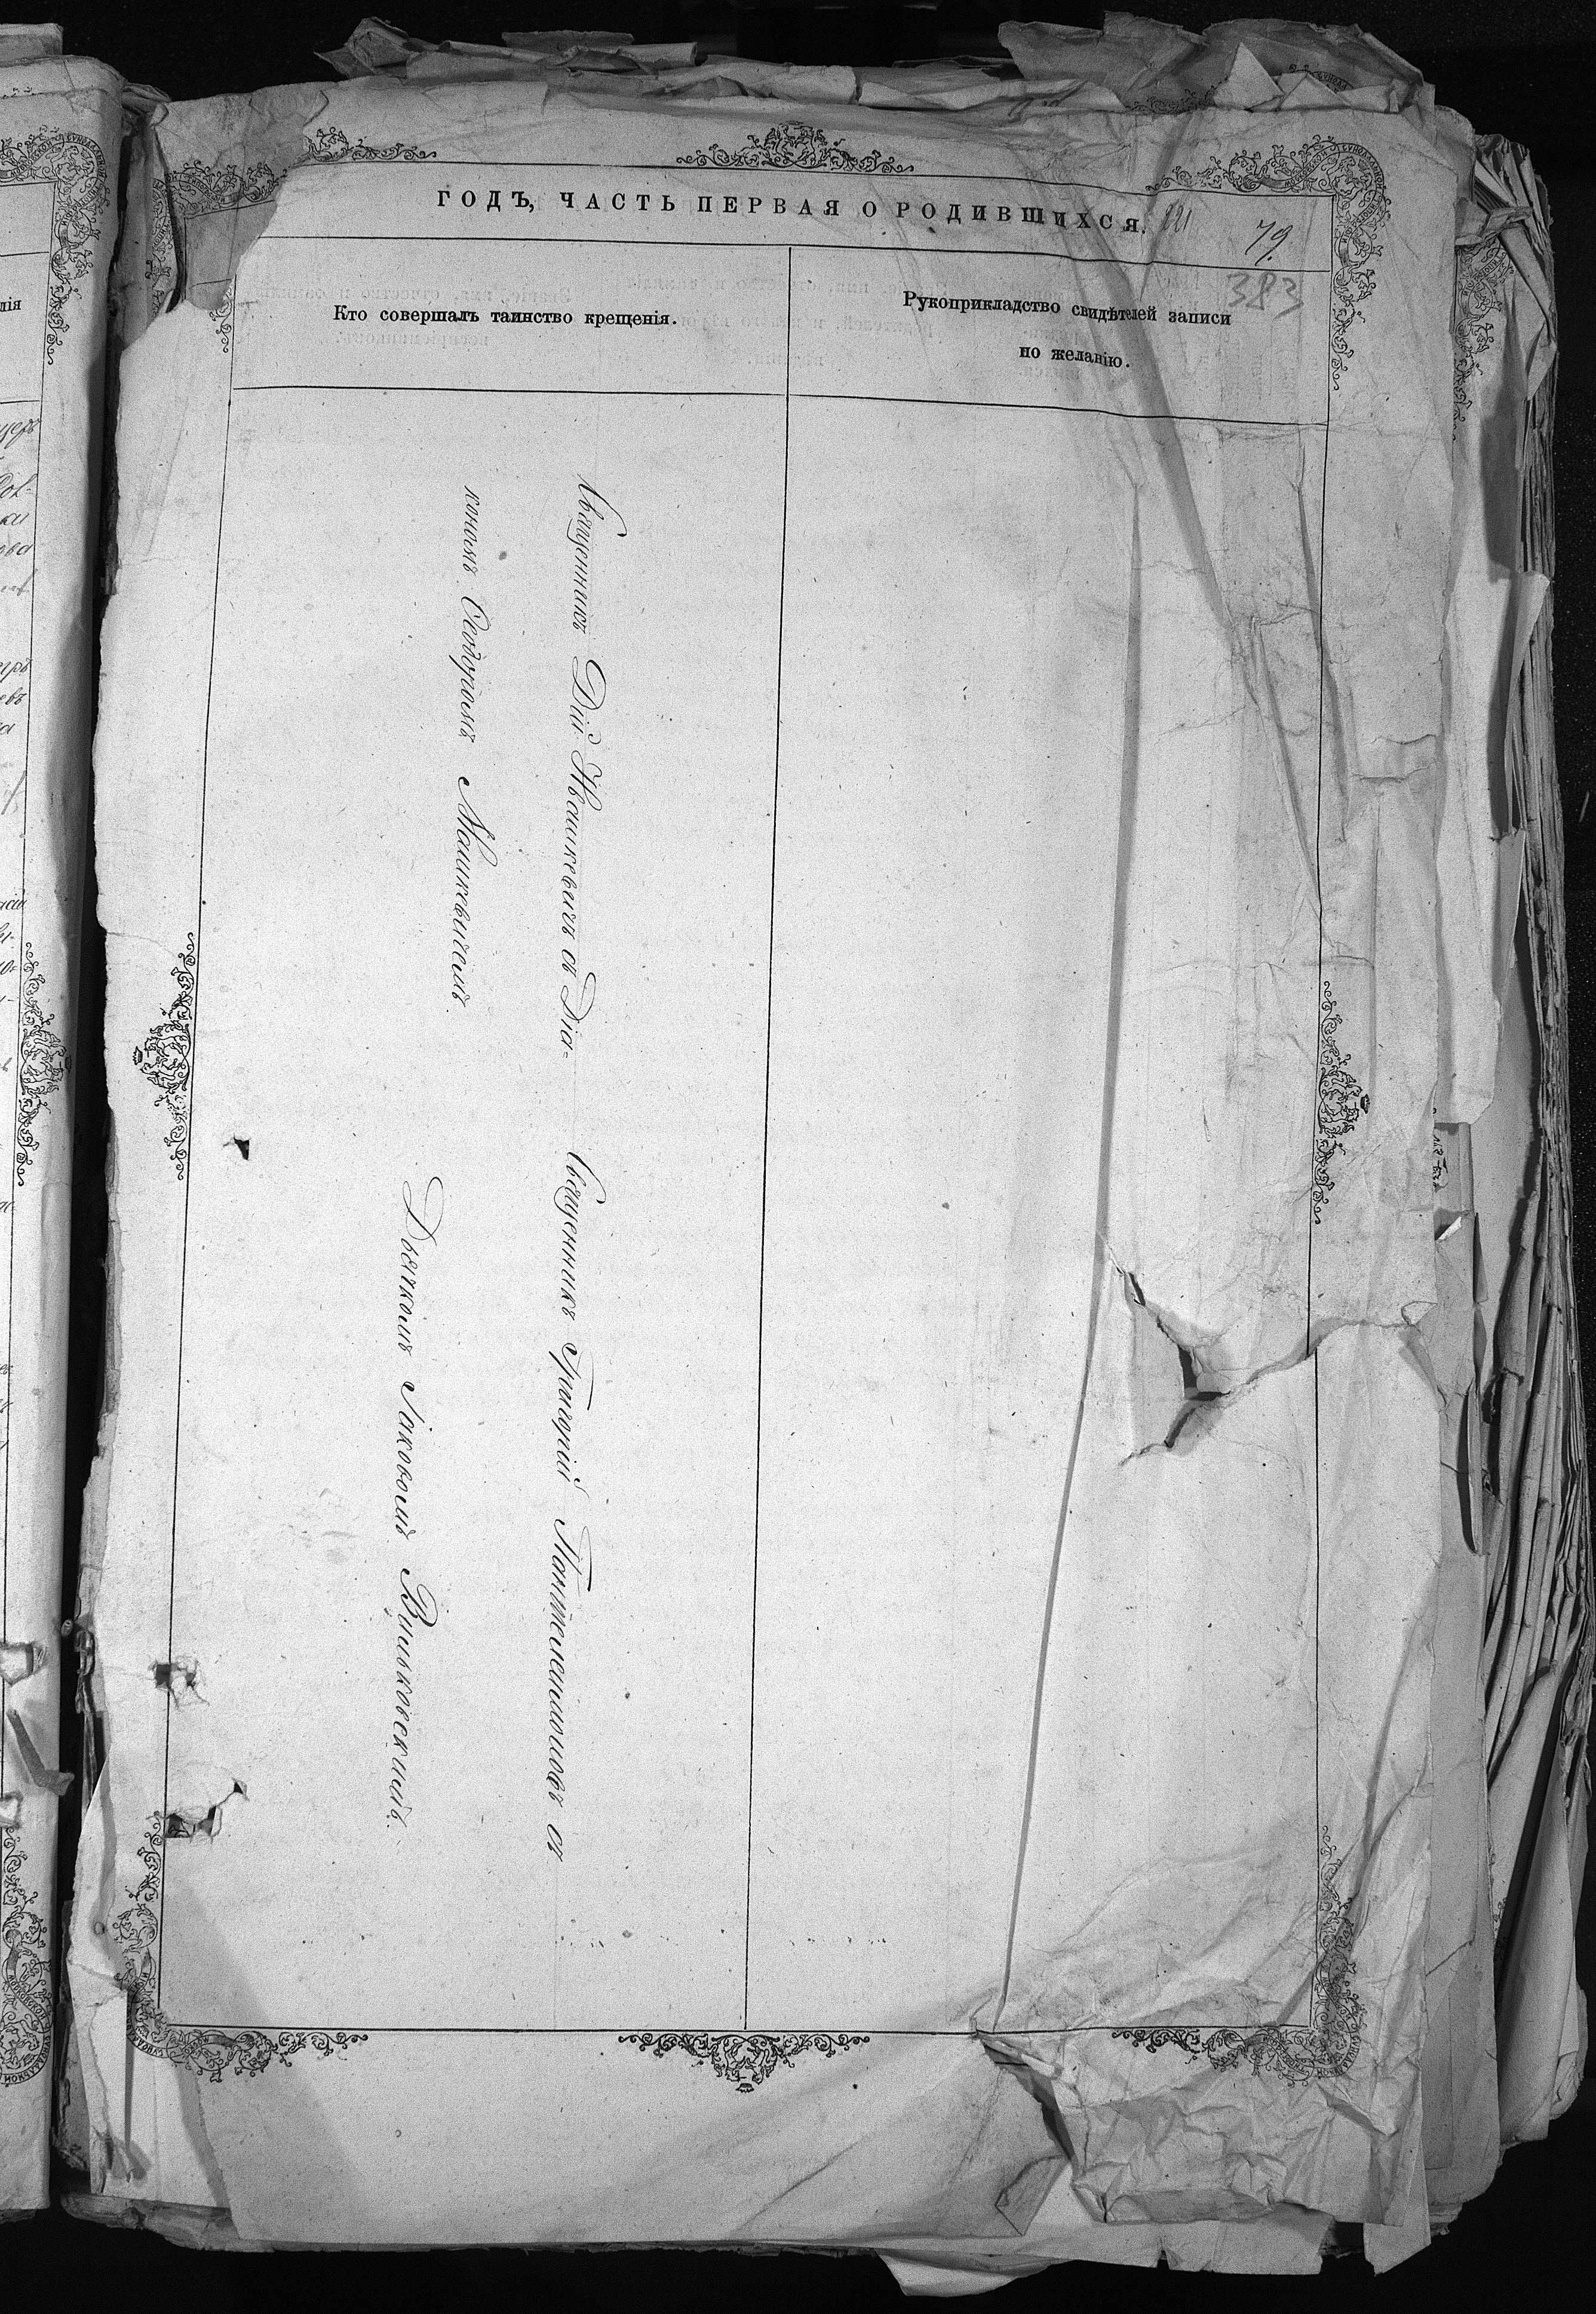 ГОДЪ, ЧАСТЬ ПЕРВАЯ О РОДИВШИХСЯ.
79.
383
Кто совершалъ таинство крещенія.
Рукоприкладство свидѣтелей записи
по желанію.
Священникъ Дій Ивашкевичъ съ Діа-
кономъ Ѳеодоромъ Машкевичемъ.
Священникъ Григорій съ
Дьячкомъ Іаковомъ Вильковскимъ.